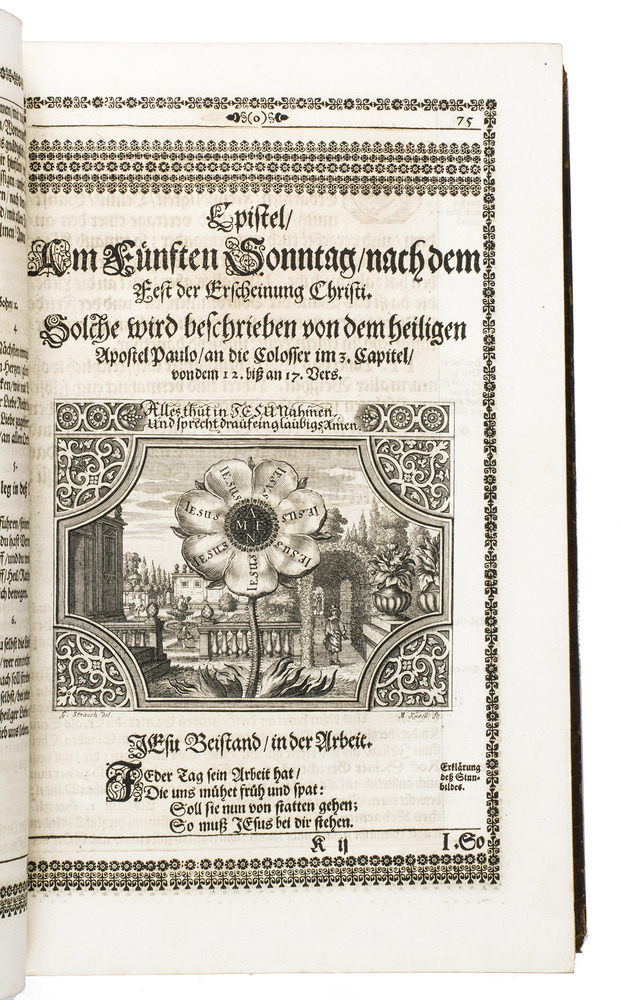 (o)
75
Epistel/
Am Fünften Sonntag/nach dem
Fest der Erscheinung Christi.
Solche wird beschrieben von dem heiligen
Apostel Paulo/an die Colosser im 3. Capitel/
von dem 12. biß an 17. Vers.
Alles thut in JESU Nahmen/
Und sprecht drauf ein glaubigs Amen.
IESUS
IESUS
IESUS
IESUS
IESUS
IESUS
IESUS
IESUS
A
MEN
G. Strauch del.
M. Küsell fe.
JEsu Beistand/in der Arbeit.
JEder Tag sein Arbeit hat/
Die uns mühet früh und spat:
Soll sie nun von statten gehen;
So muß JEsus bei dir stehen.
Erklärung
deß Sinn-
bildes.
K ij
I. So